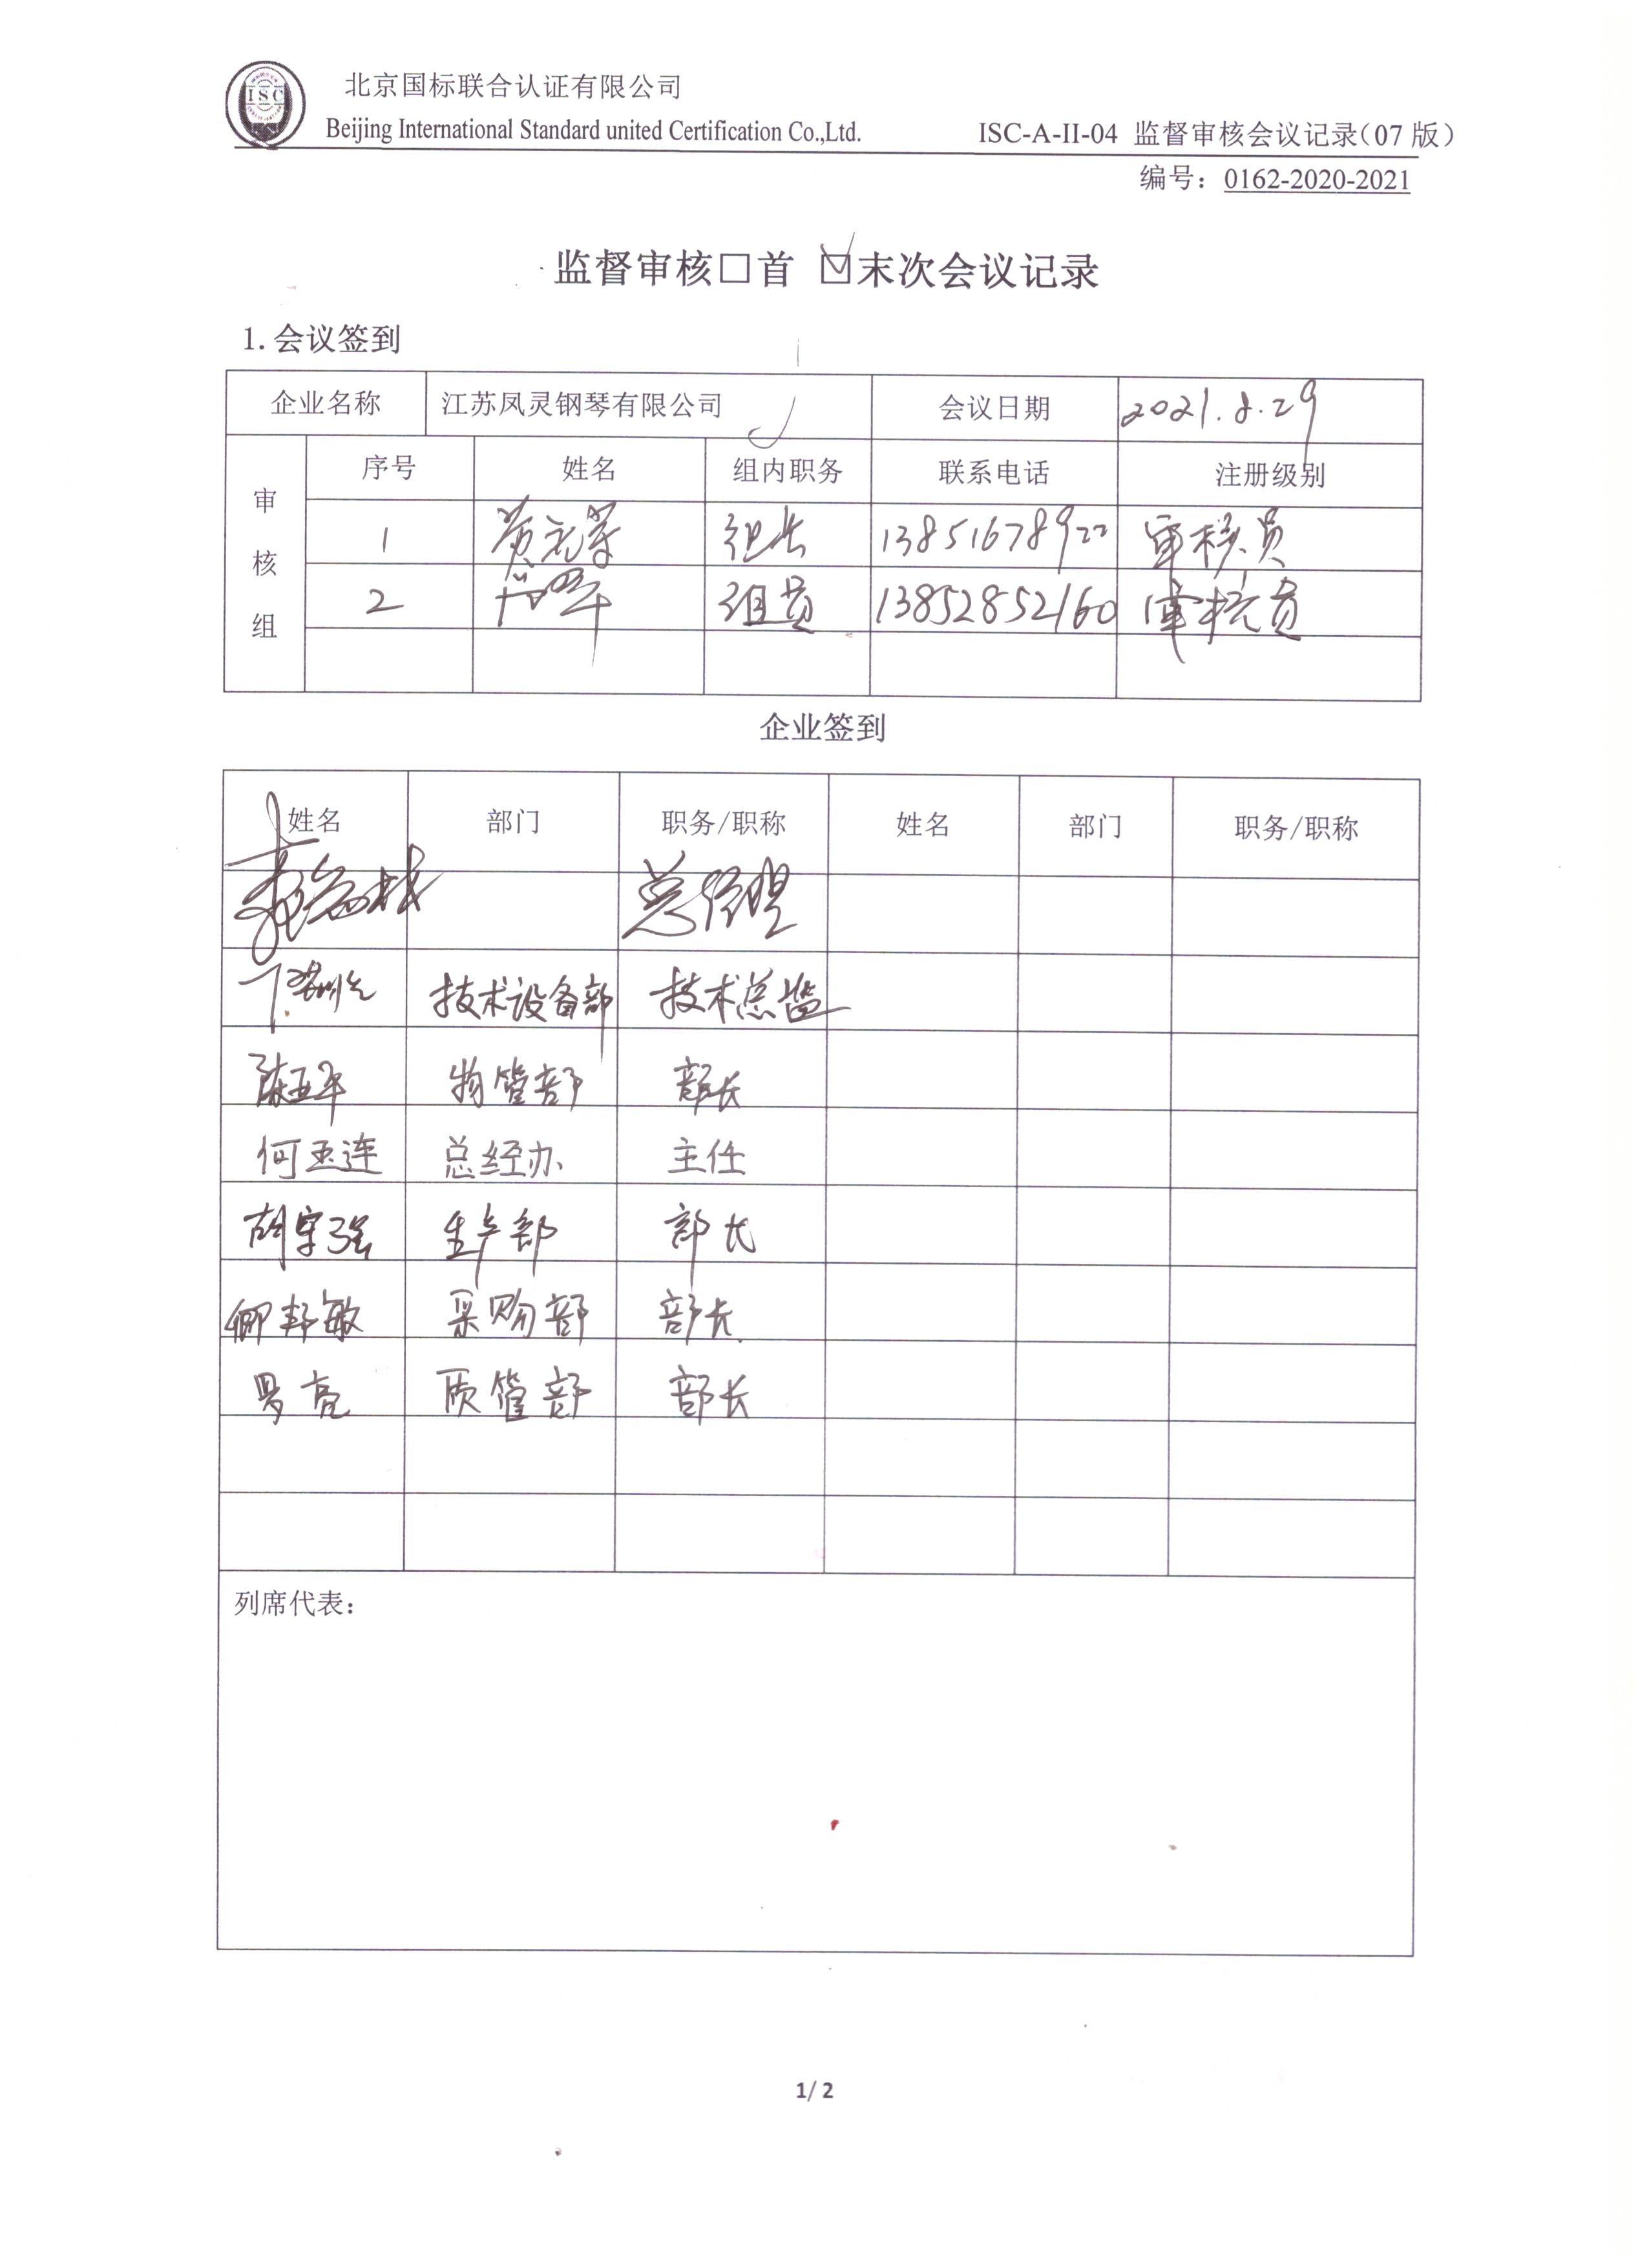 ISC
北京国标联合认证有限公司
Beijing International Standard united Certification Co.,Ltd.
ISC-A-II-04 监督审核会议记录(07版)
编号: 0162-2020-2021
监督审核□首 ☑末次会议记录
1.会议签到
企业名称 江苏凤灵钢琴有限公司 会议日期 2021.8.29
审核组 序号 姓名 组内职务 联系电话 注册级别
1 组长 13851678922 审核员
2 组员 13852852160 审核员
企业签到
姓名 部门 职务/职称 姓名 部门 职务/职称
总经理
技术设备部 技术总监
陈亚平 物管部 部长
何玉连 总经办 主任
胡宗强 生产部 部长
卿邦敏 采购部 部长
罗亮 质管部 部长
列席代表:
1/ 2